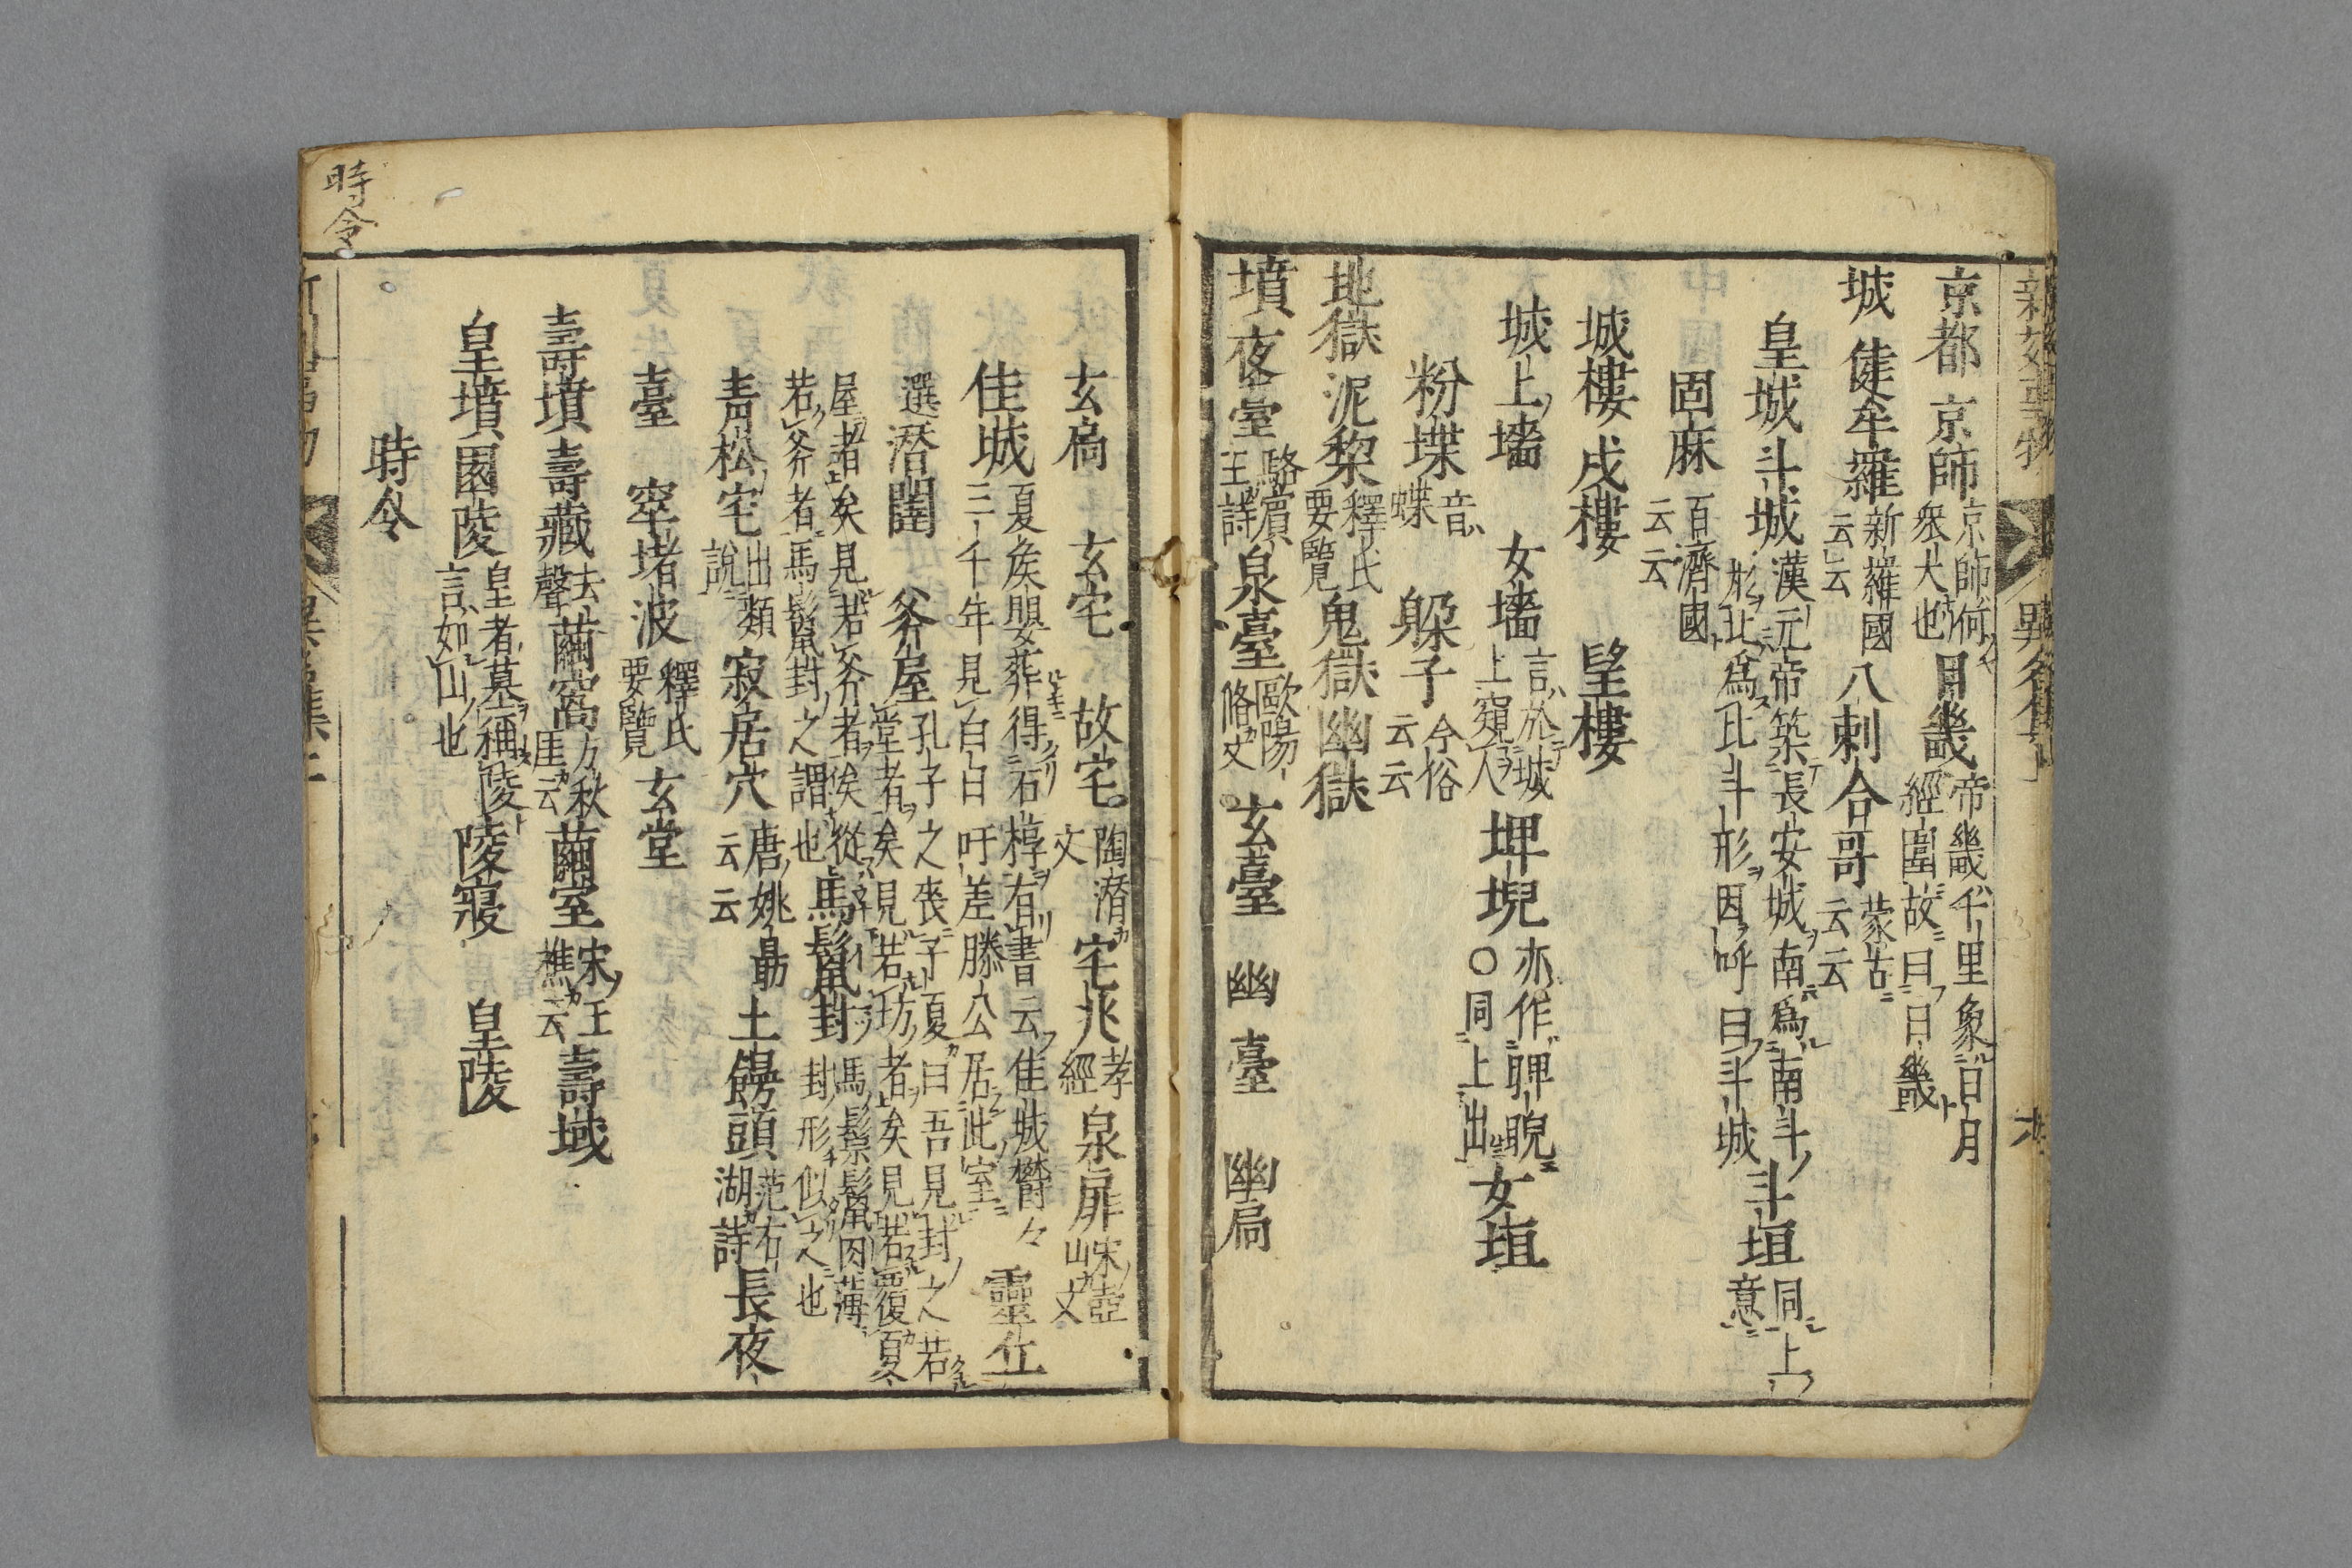 京都 京師 京師何衆大也 日畿 帝畿千里象日月經圍故曰日畿
城 健牟羅 新羅國云云 八刺合哥 蒙古云云
皇城 斗城 漢元帝築長安城南爲南斗形北爲北斗形因呼曰斗城 斗垣 同上意
固麻 百濟國云云
城樓 戍樓 望樓
城上墻 女墻 言於城上窺人 埤堄 亦作睥睨○同上出 女垣
粉堞 音蝶 躱子 今俗云云
地獄 泥黎 釋氏要覽 鬼獄 幽獄
墳 夜臺 駱賓王詩 泉臺 歐陽脩文 玄臺 幽臺 幽扃
玄扃 玄宅 故宅 陶潛文 宅兆 孝經 泉扉 宋壺山文
佳城 夏侯嬰葬得石椁有書云佳城欝々三千年見白日吁差滕公居此室 靈丘
選 潛闥 斧屋 孔子之喪子夏曰吾見封之若堂者矣見若坊者矣見若覆夏
屋者矣見若斧者矣從若斧者馬鬣封之謂也 馬鬣封 馬鬃鬣肉薄封形似之也
青松宅 出類說 寂居穴 唐姚勗云云 土饅頭 范石湖詩 長夜
臺 窣堵波 釋氏要覽 玄堂
壽墳 壽藏 去聲 繭窩 方秋厓云 繭室 宋王樵云 壽域
皇墳 園陵 皇者墓稱陵言如山也 陵寢 皇陵
時令
時令